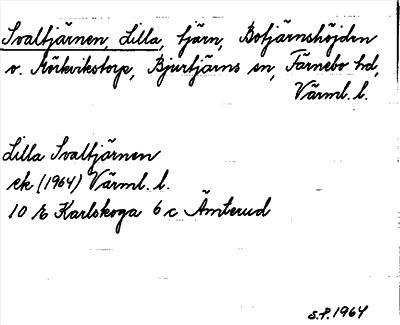 Svaltjärnen, Lilla, tjärn, Botjärnshöjden
v. Mörkvikstorp, Bjurtjärns sn, Färnebo hd,
Värml. l.
Lilla Svaltjärnen
ek (1964) Värml. l.
10 E Karlskoga 6 c Ämterud
S.P. 1964